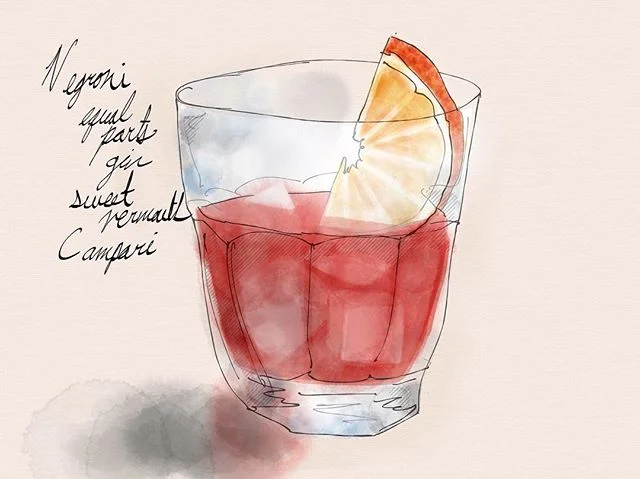 Negroni
equal
parts
gin
sweet
vermouth
Campari